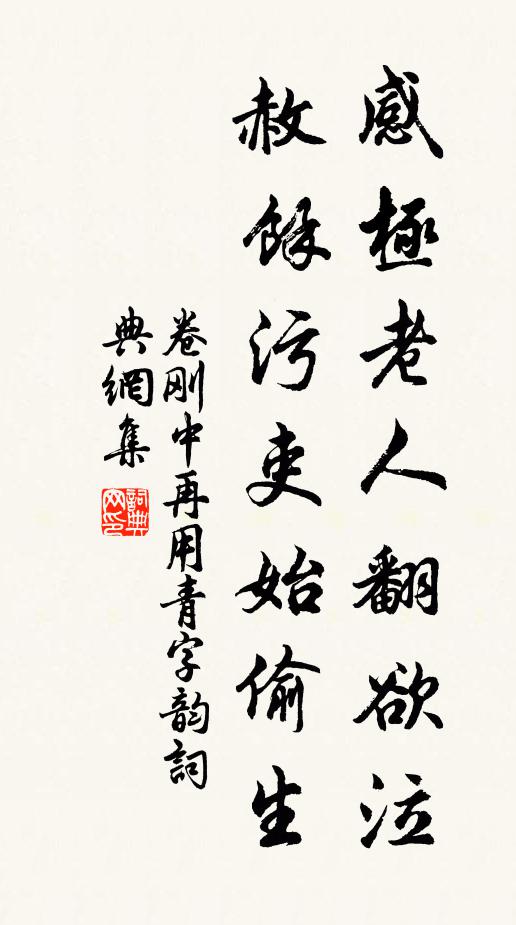 感極老人翻欲泣
赦餘污吏始偷生
卷剛中再用青字韵詞
典網集
詞典網印